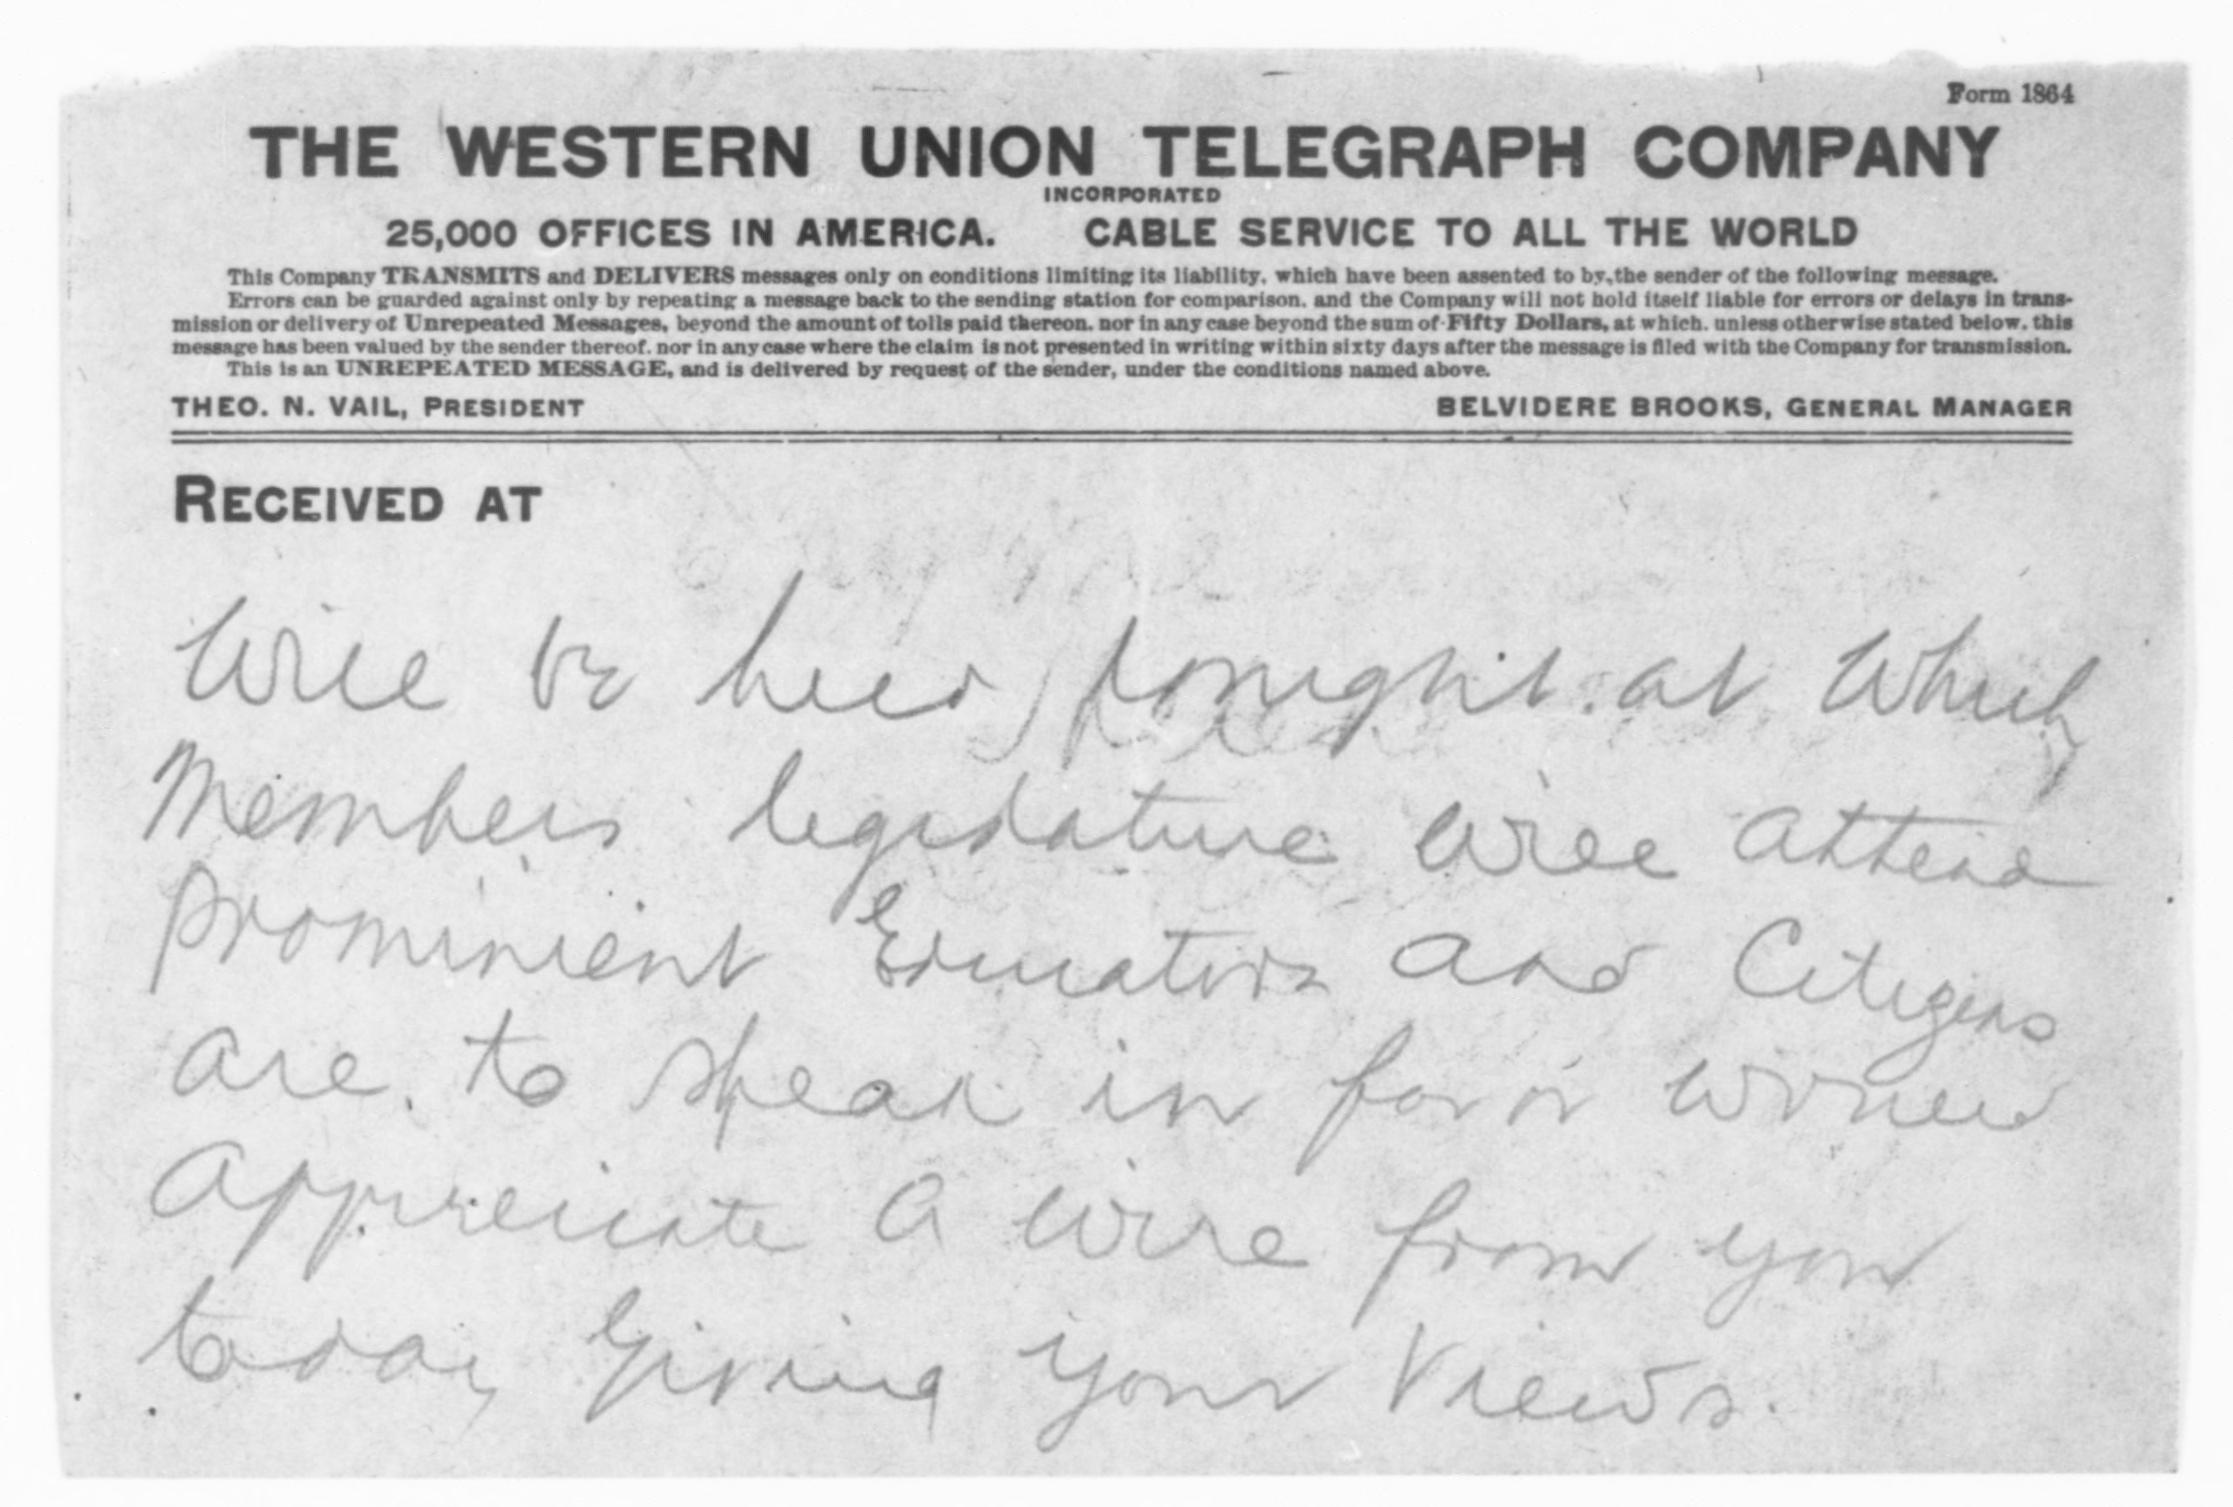 Form 1864
THE WESTERN UNION TELEGRAPH COMPANY
INCORPORATED
25,000 OFFICES IN AMERICA. CABLE SERVICE TO ALL THE WORLD
This Company TRANSMITS and DELIVERS messages only on conditions limiting its liability, which have been assented to by the sender of the following message.
Errors can be guarded against only by repeating a message back to the sending station for comparison, and the Company will not hold itself liable for errors or delays in trans-
mission or delivery of Unrepeated Messages, beyond the amount of tolls paid thereon, nor in any case beyond the sum of Fifty Dollars, at which, unless otherwise stated below, this
message has been valued by the sender thereof, nor in any case where the claim is not presented in writing within sixty days after the message is filed with the Company for transmission.
This is an UNREPEATED MESSAGE, and is delivered by request of the sender, under the conditions named above.
THEO. N. VAIL, PRESIDENT BELVIDERE BROOKS, GENERAL MANAGER
RECEIVED AT
Will be held tonight at Which
Members legislature will attend
prominient Educators and Citizens
are to speak in favor women
Appreciate a wire from you
today Giving your Views.